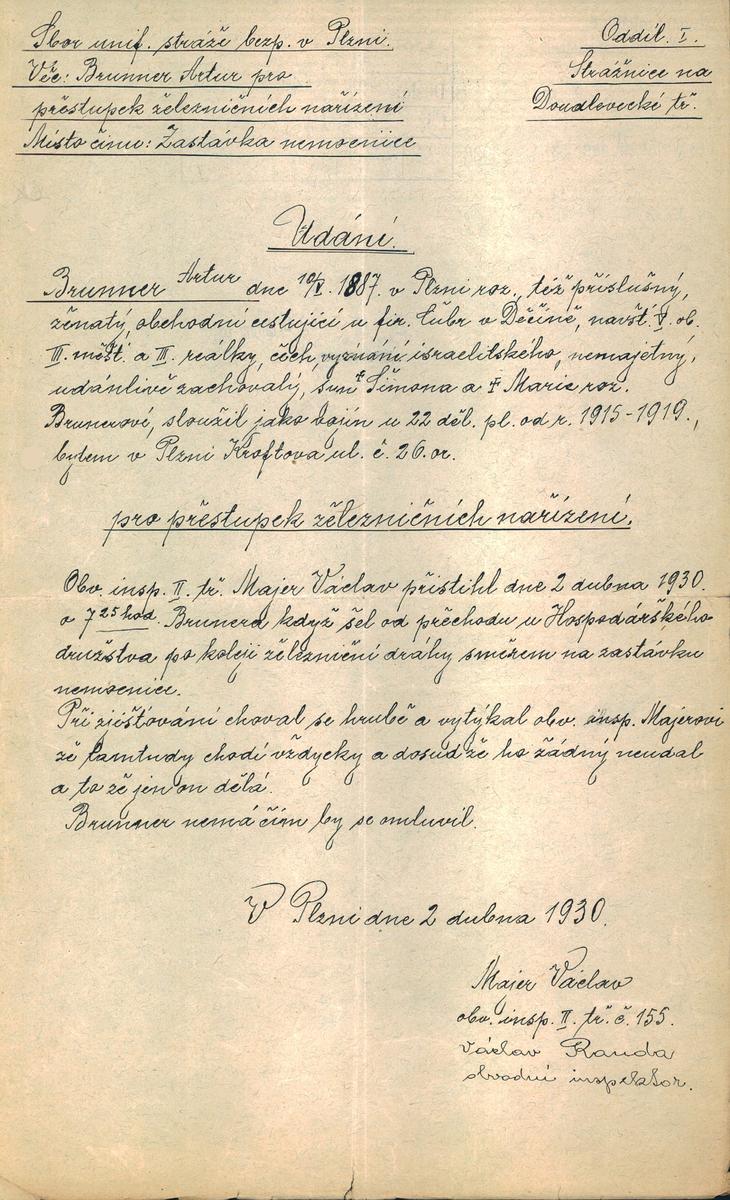 Sbor unif. stráže bezp. v Plzni.
Oddíl. I.
Věc: Brunner Artur pro
Strážnice na
přestupek železničních nařízení
Doudlevecké tř.
Místo činu: Zastávka nemocnice
Udání.
Brunner Artur dne 10/V. 1887. v Plzni roz. též příslušný,
ženatý, obchodní cestující u fir. v Děčíně, navšt. V. ob.
III. měšť. a III. reálky, čech, vyznání israelitského, nemajetný,
udánlivě zachovalý, syn † Šimona a † Marie roz.
Brunerové, sloužil jako vojín u 22 děl. pl. od r. 1915-1919.,
bytem v Plzni Kroftova ul. č. 26. or.
pro přestupek železničních nařízení.
Obv. insp. II. tř. Majer Václav přistihl dne 2 dubna 1930.
o 7 25 hod. Brunera když šel od přechodu u Hospodářského
družstva po koleji železniční dráhy směrem na zastávku
nemocnice.
Při zjišťování choval se hrubě a vytýkal obv. insp. Majerovi
že tamtudy chodí vždycky a dosud že ho žádný neudal
a to že jen on dělá.
Brunner nemá čím by se omluvil.
V Plzni dne 2 dubna 1930.
Majer Václav
obv. insp. II. tř. č. 155.
Václav Randa
obvodní inspektor.